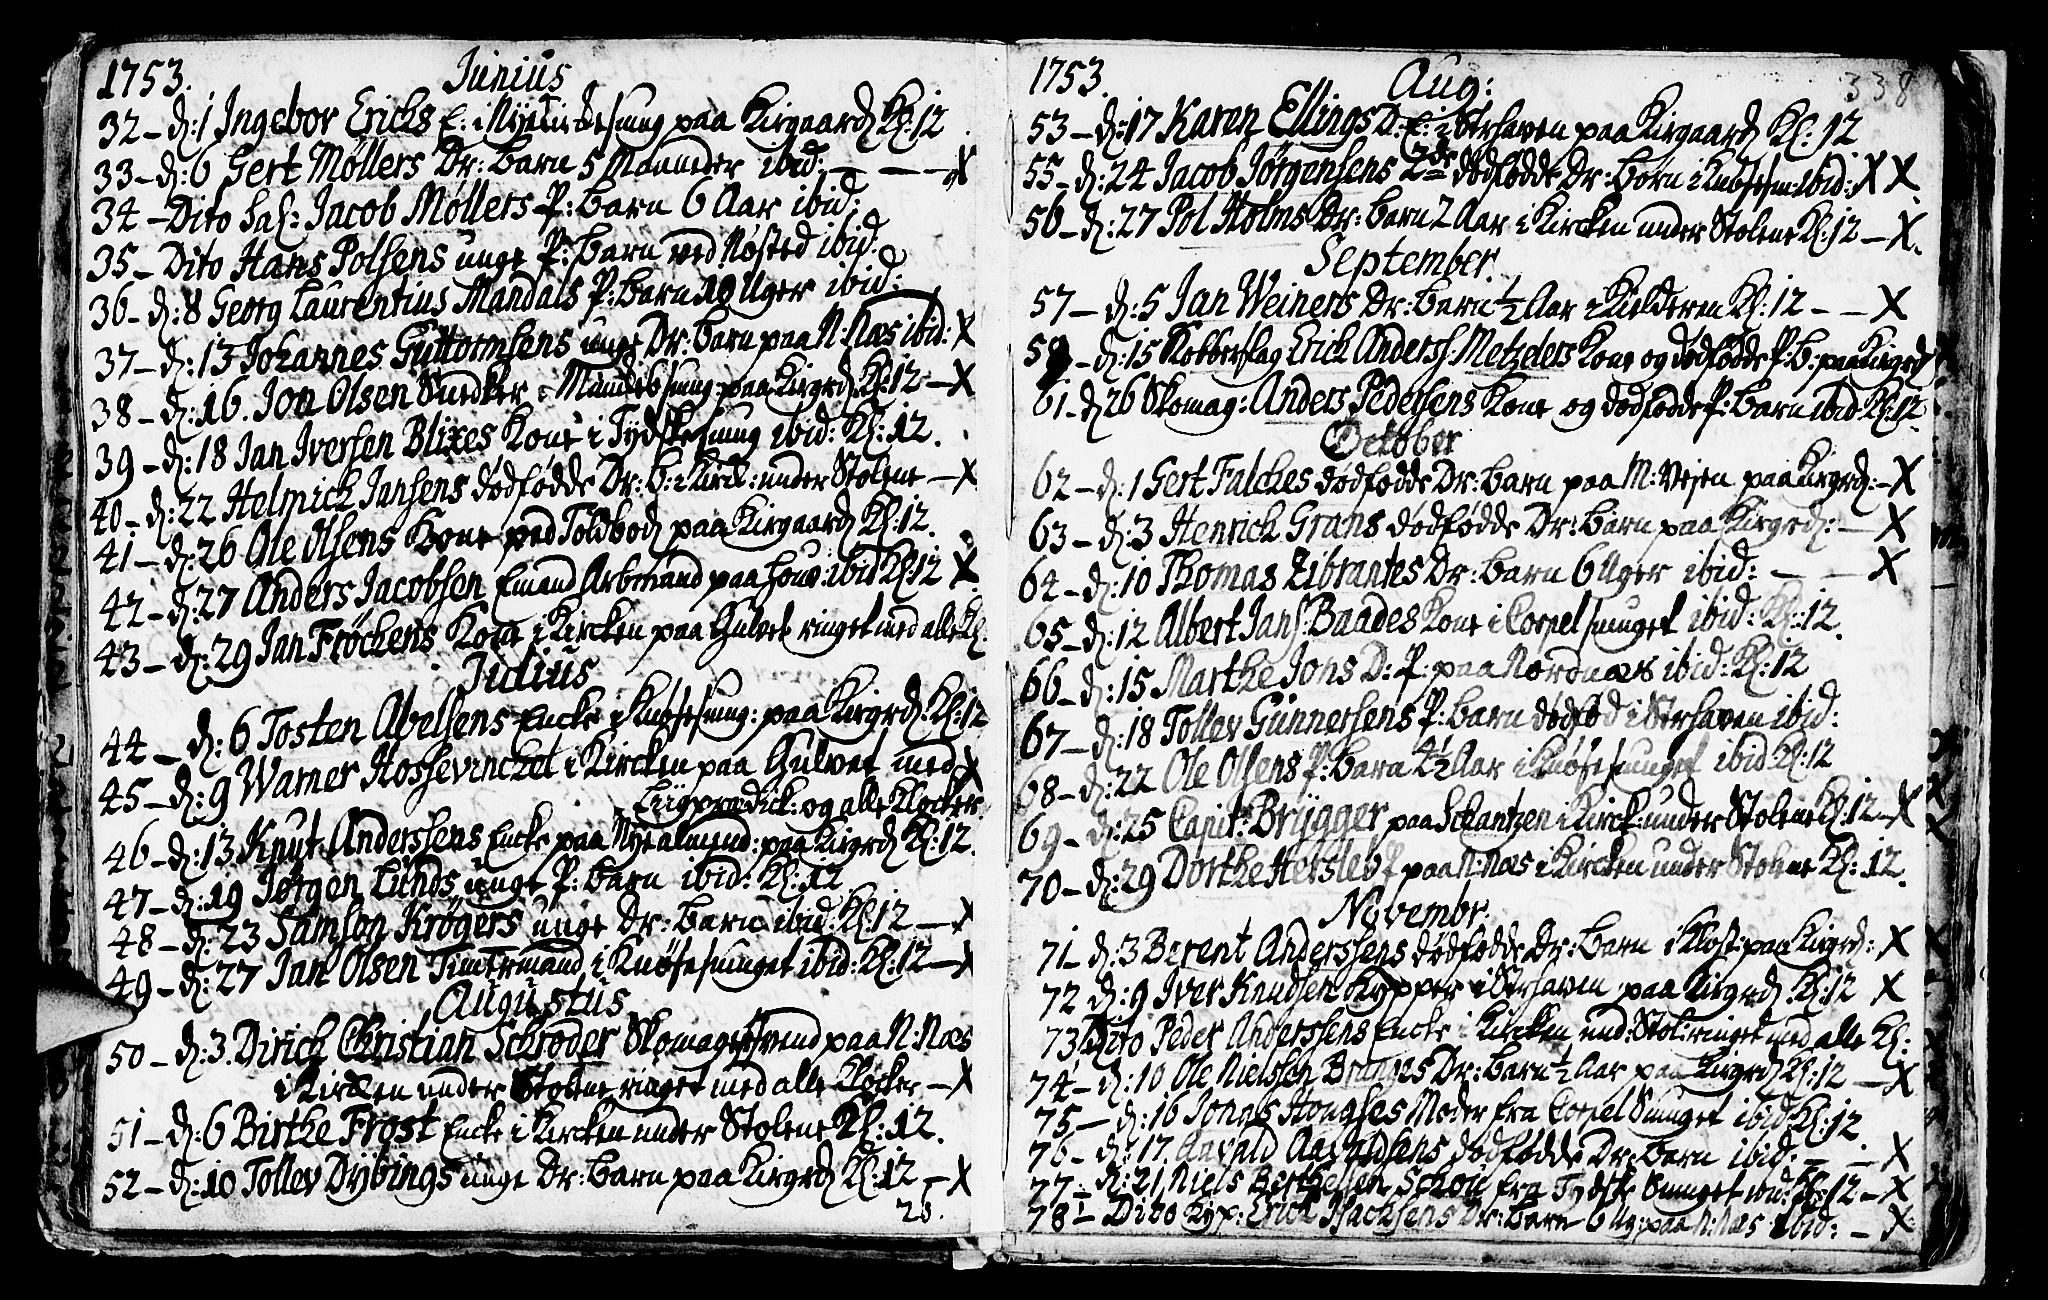 1753. Junius
32 – d: 1 Ingebor Erichs E: i paa Kirgaard Kl: 12
33 – d: 6 Gert Møllers Dr: Barn 5 Maaneder ibid: – – –
34 – Dito Sal: Jacob Møllers P: Barn 6 Aar ibid:
35 – Dito Hans Polsens unge P: Barn ved Nøsted ibid:
36 – d: 8 Georg Laurentius Mandals P: Barn 10 Uger ibid:
37 – d: 13 Johannes Guttormsens unge Dr: Barn paa N: Næs ibid: X
38 – d: 16. Jon Olsen Snedker i paa Kirgrd Kl: 12 – X
39 – d: 18 Jan Iversen Blixes Kone i Tydskesmug ibid: Kl: 12.
40 – d: 22 Helmick Jansens dødfødde Dr: B: i Kirk: under Stolene – X
41 – d: 26 Ole Olsens Kone ved Toldbod paa Kirgaard Kl: 12.
42 – d: 27 Anders Jacobsen Emand Arbmand paa ibid Kl: 12 X
43 – d: 29 Jan Frøchens Kone i Kircken paa Gulvet ringet med alle Kl:
Julius
44 – d: 6 Tosten Abelsens Encke i Knøsesmug: paa Kirgrd: Kl: 12
45 – d: 9 Warner Hossevinckel i Kircken paa Gulvet med X
Liigprædick: og alle Klocker.
46 – d: 13 Knut Anderssens Encke paa Nye almend: paa Kirgrd Kl: 12.
47 – d: 19 Jørgen Lunds unge P: Barn ibid: Kl: 12
48 – d: 23 Samson Krøgers unge Dr: Barn ibid: Kl: 12 – X
49 – d: 27 Jan Olsen Timermand i Knøsesmuget ibid: Kl: 12 – X
Augustus
50 – d: 3. Dirich Christian Schrøder Skomagersvend paa N: Næs
i Kircken under Stolene ringet med alle Klocker – X
51 – d: 6 Birthe Frost Encke i Kircken under Stolene Kl: 12.
52 – d: 10 Tollev Dybings unge Dr: Barn paa Kirgrd Kl: 12 – X
26.
1753. Aug: 338
53 – d: 17 Karen Ellings D: E: i Sterhaven paa Kirgaard Kl: 12
55 – d: 24 Jacob Jørgensens 2de dødfødde Dr: Børn i Knøsesm: ibid: X X
56 – d: 27 Pol Holms Dr: Barn 2 Aar i Kircken under Stolene Kl: 12 – X.
September.
57 – d: 5 Jan Weiners Dr: Barn ½ Aar i Kielderen Kl: 12 – – X
59 – d: 15 Kobberslag Erich Anderss: Metzelers Kone og dødfødde P: B: paa Kirgrd
61 – d 26 Skomag: Anders Pedersens Kone og dødfødde P: Barn ibid: Kl: 12.
October
62 – d: 1 Gert Falckes dødfødde Dr: Barn paa M: Vejen paa Kirgrd: – X
63 – d: 3 Henrich Grans dødfødde Dr: Barn paa Kirgrd: – X
64 – d: 10 Thomas Zibrantes Dr: Barn 6 Uger ibid: – – X
65 – d: 12 Albert Jans: Baades Kone i Corpelsmuget ibid: Kl: 12.
66 – d: 15 Marthe Jons D: P: paa Nordnæs ibid: Kl: 12
67 – d: 18 Tollev Gunnersens P: Barn dødfød i Sterhaven ibid:
68 – d: 22 Ole Olsens P: Barn 4½ Aar i Knøsesmuget ibid: Kl: 12
69 – d: 25 Capit: Brygger paa Schantzen i Kirck: under Stolene Kl: 12 – X
70 – d: 29 Dorthe Herslev P paa N: Næs i Kircken under Stolene Kl: 12.
Novembr.
71 – d: 3 Berent Anderssens dødfødde Dr: Barn i Klost: paa Kirgrd: X
72 d: 9 Iver Knudsen Kypper i Sterhaven paa Kirgrd Kl: 12 X
73 Dito Peder Anderssens Encke i Kircken und: Stol: ringet med alle Kl:
74 – d: 10 Ole Nielsen Dr: Barn ½ Aar paa Kirgrd Kl: 12 – X
75 – d: 16 Moder fra Corpelsmuget ibid: Kl: 12
76 – d: 17. Aavald Aavaldsens dødfødde Dr: Barn ibid. – – X
77 – d: 21 Niels Berthelsen Schou fra Tydske Smuget ibid: Kl: 12 – X
78 – Dito Kyp: Erich Isacksens Dr: Barn 6 Ug: paa N: Næs ibid: – X